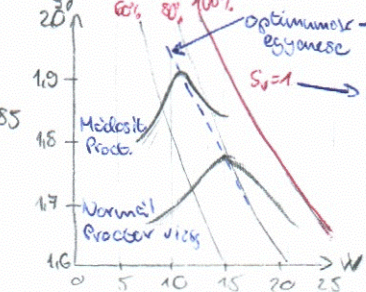 60% 80% 100%
2,0
optimumok
egyenese
1,9
Sᵥ=1
85
1,8
Módosít.
Proct.
1,7
Normál
Proctor vizsg
1,6
0 5 10 15 20 25
W